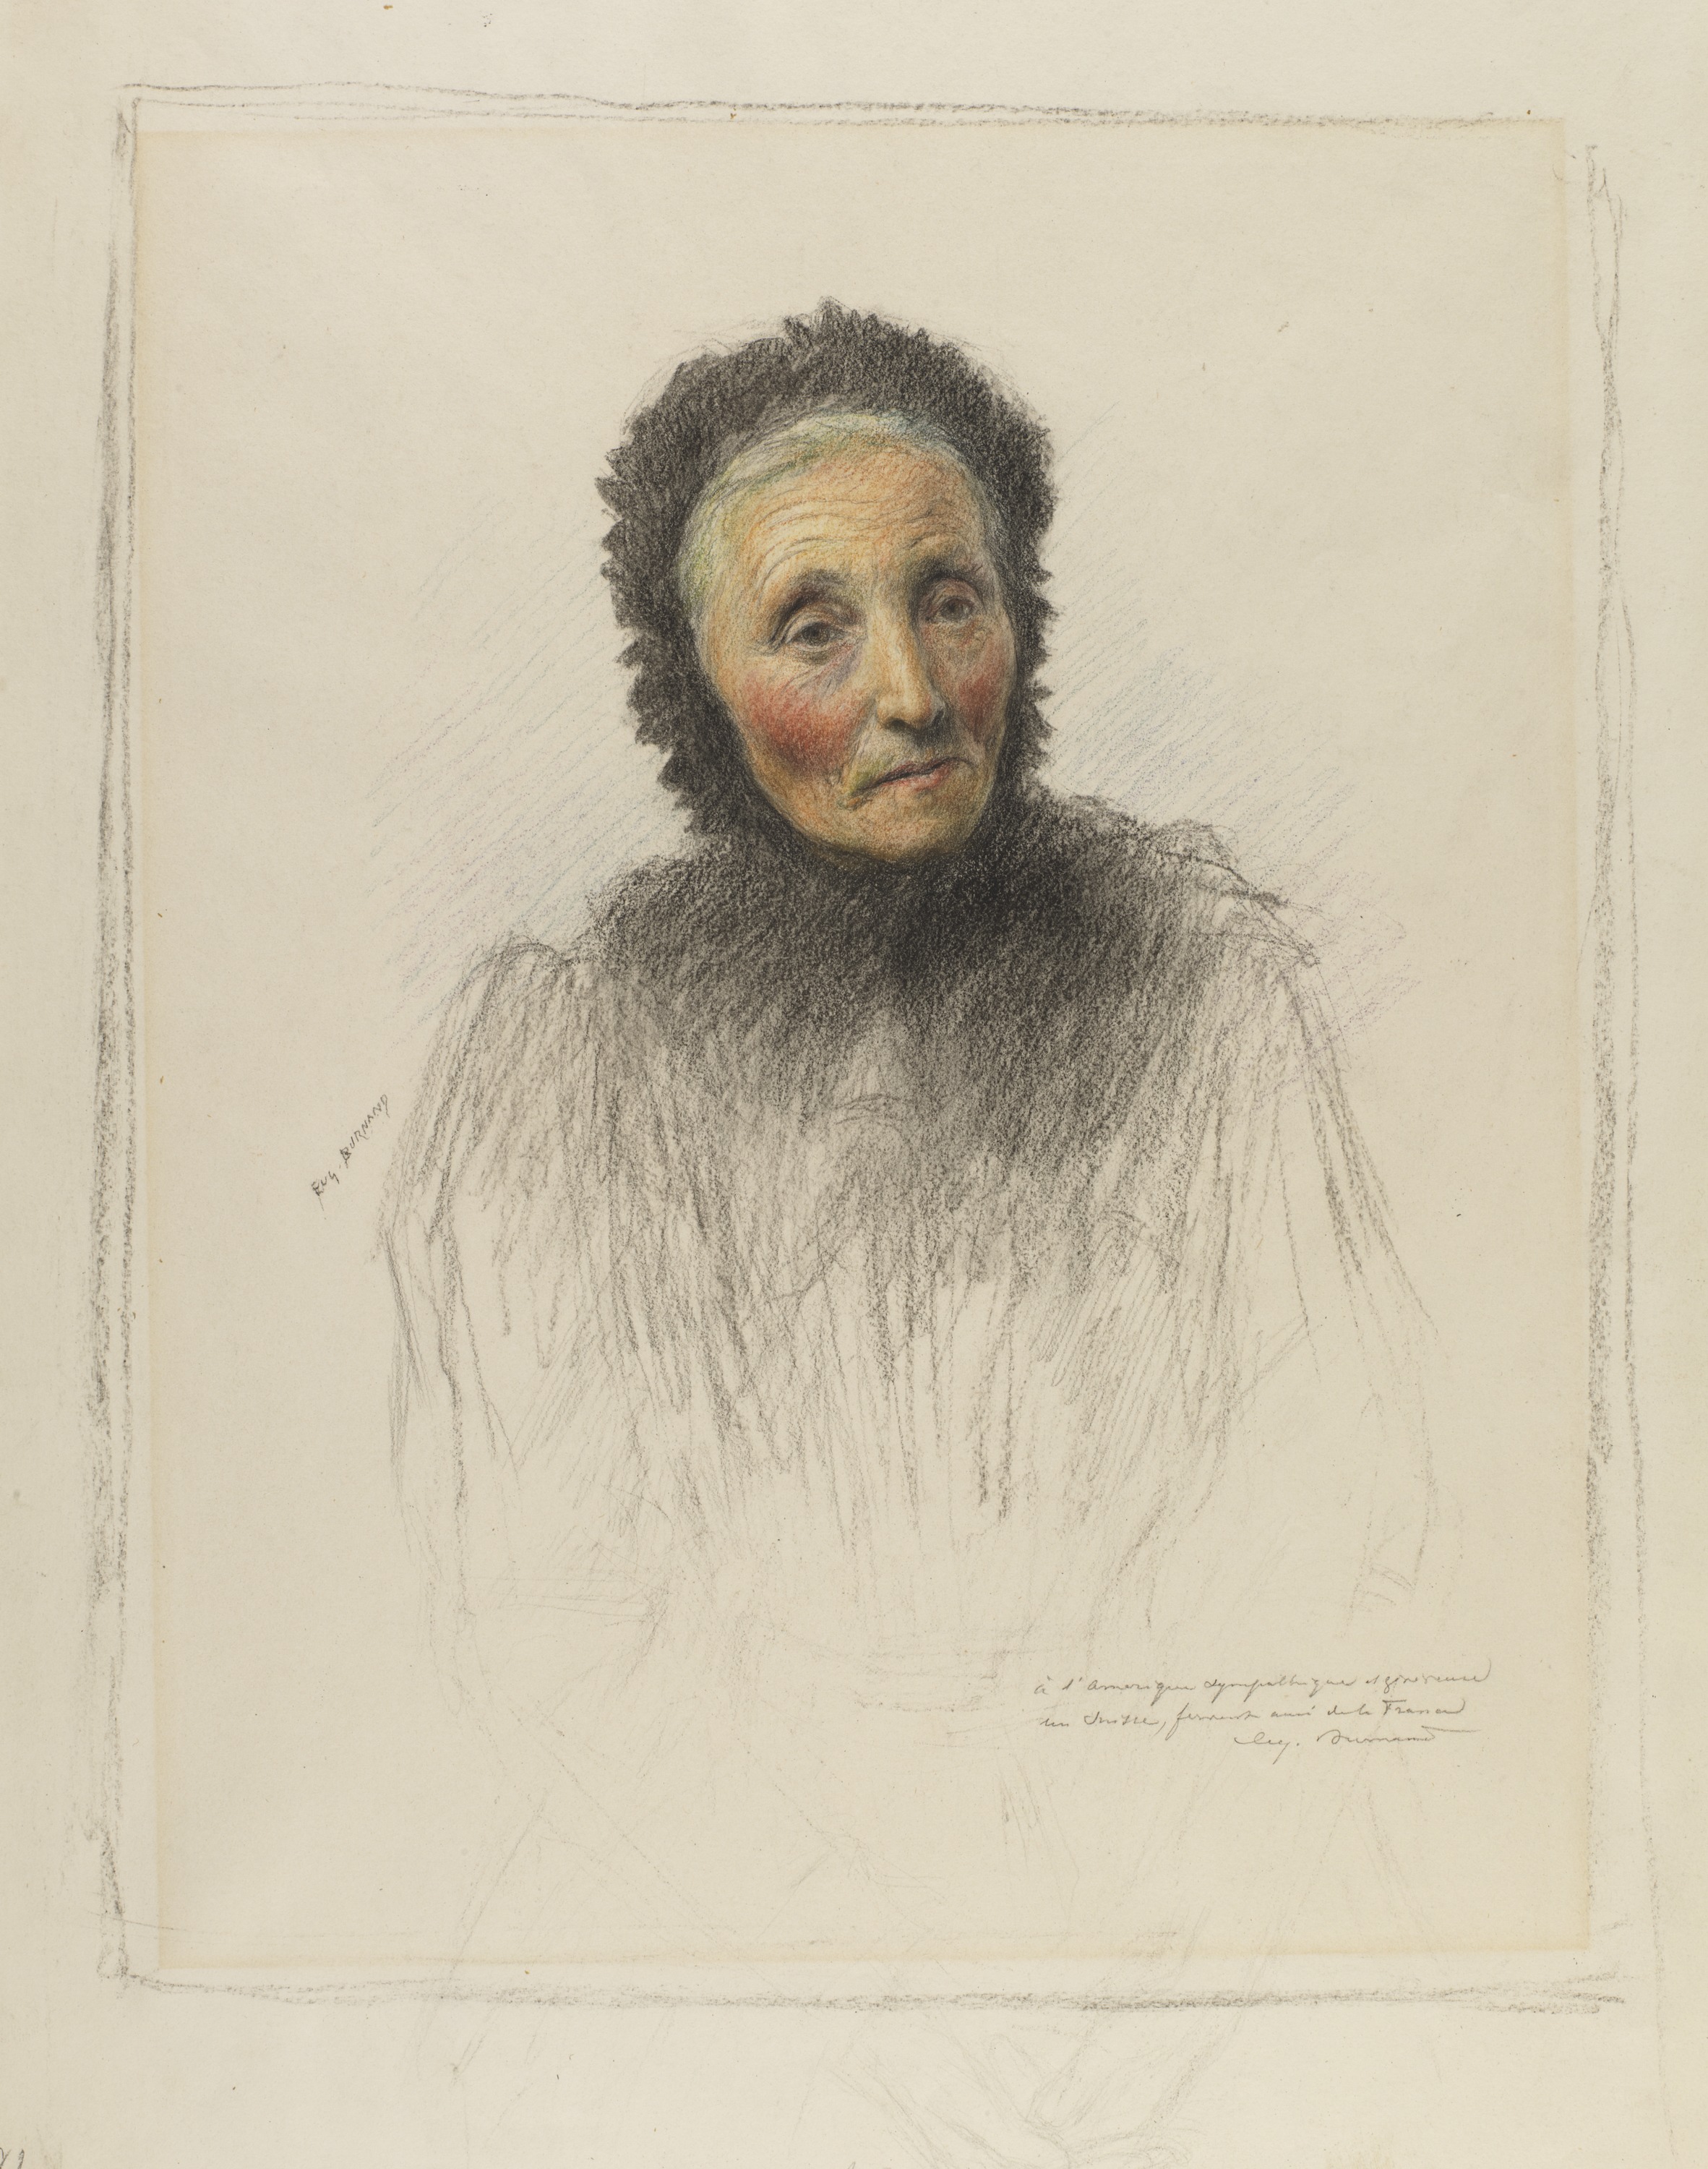 EUG. BURNAND
à l'Amérique sympathique et généreuse
un Suisse, fervent ami de la France
Eug. Burnand